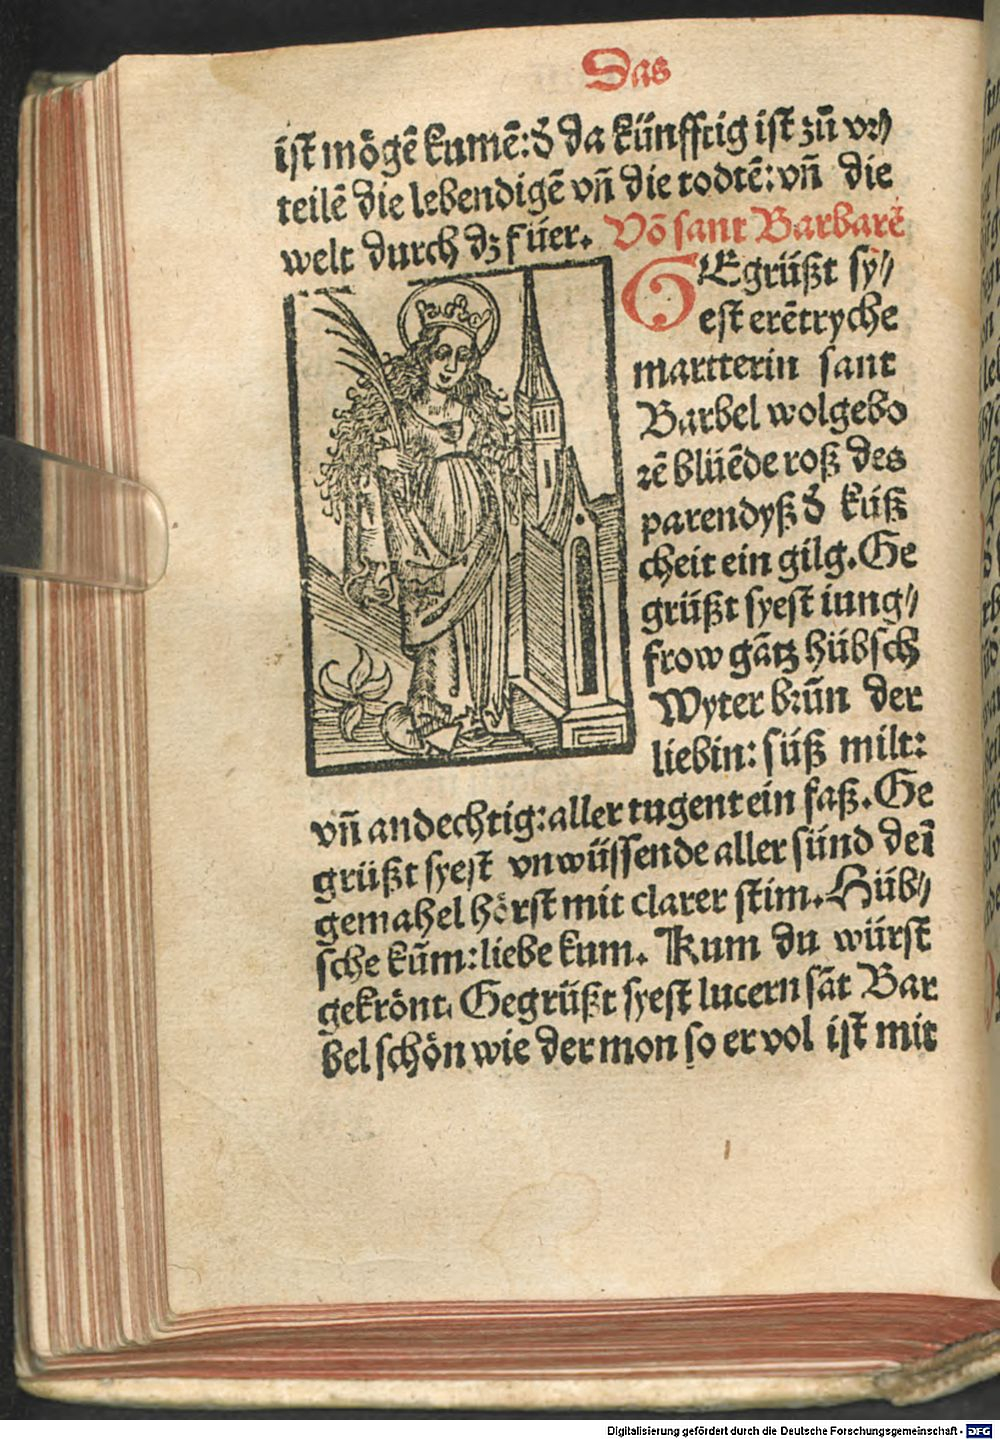 Das
ist mögē kumē: d̄ da künfftig ist zū vr⸗
teilē die lebendigē vn̄ die todtē: vn̄ die
welt durch dz füer. Vō sant Barbarē
GEgrüßt sy⸗
est erētryche
martterin sant
Barbel wolgebo
rē blüēde roß des
parendyß d̄ küß
cheit ein gilg. Ge
grüßt syest iung⸗
frow gātz hübsch
Wyter brūn der
liebin: süß milt:
vn̄ andechtig: aller tugent ein faß. Ge
grüßt syest vnwüssende aller sünd deī
gemahel hörst mit clarer stim. Hüb⸗
sche kūm: liebe kum. Kum du würst
gekrönt. Gegrüßt syest lucern sāt Bar
bel schön wie der mon so er vol ist mit
Digitalisierung gefördert durch die Deutsche Forschungsgemeinschaft - DFG